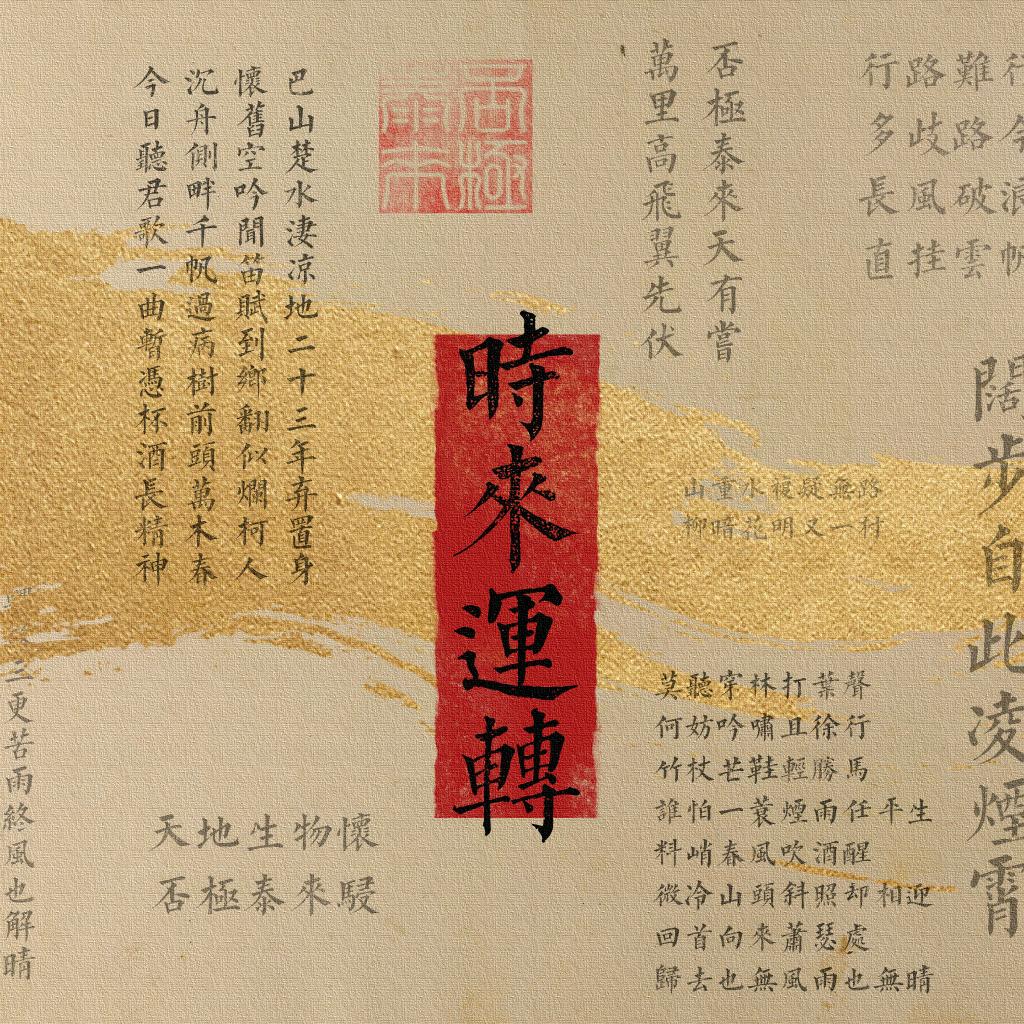 行路難行
多歧路今
長風破浪
直挂雲帆
闊步自此凌煙霄
否極泰來天有嘗
萬里高飛翼先伏
否極
泰來
巴山楚水淒凉地二十三年弃置身
懷舊空吟聞笛賦到鄉翻似爛柯人
沉舟側畔千帆過病樹前頭萬木春
今日聽君歌一曲暫憑杯酒長精神
時來運轉
山重水複疑無路
柳暗花明又一村
莫聽穿林打葉聲
何妨吟嘯且徐行
竹杖芒鞋輕勝馬
誰怕一蓑煙雨任平生
料峭春風吹酒醒
微冷山頭斜照却相迎
回首向來蕭瑟處
歸去也無風雨也無晴
天地生物懷
否極泰來駸
三更苦雨終風也解晴